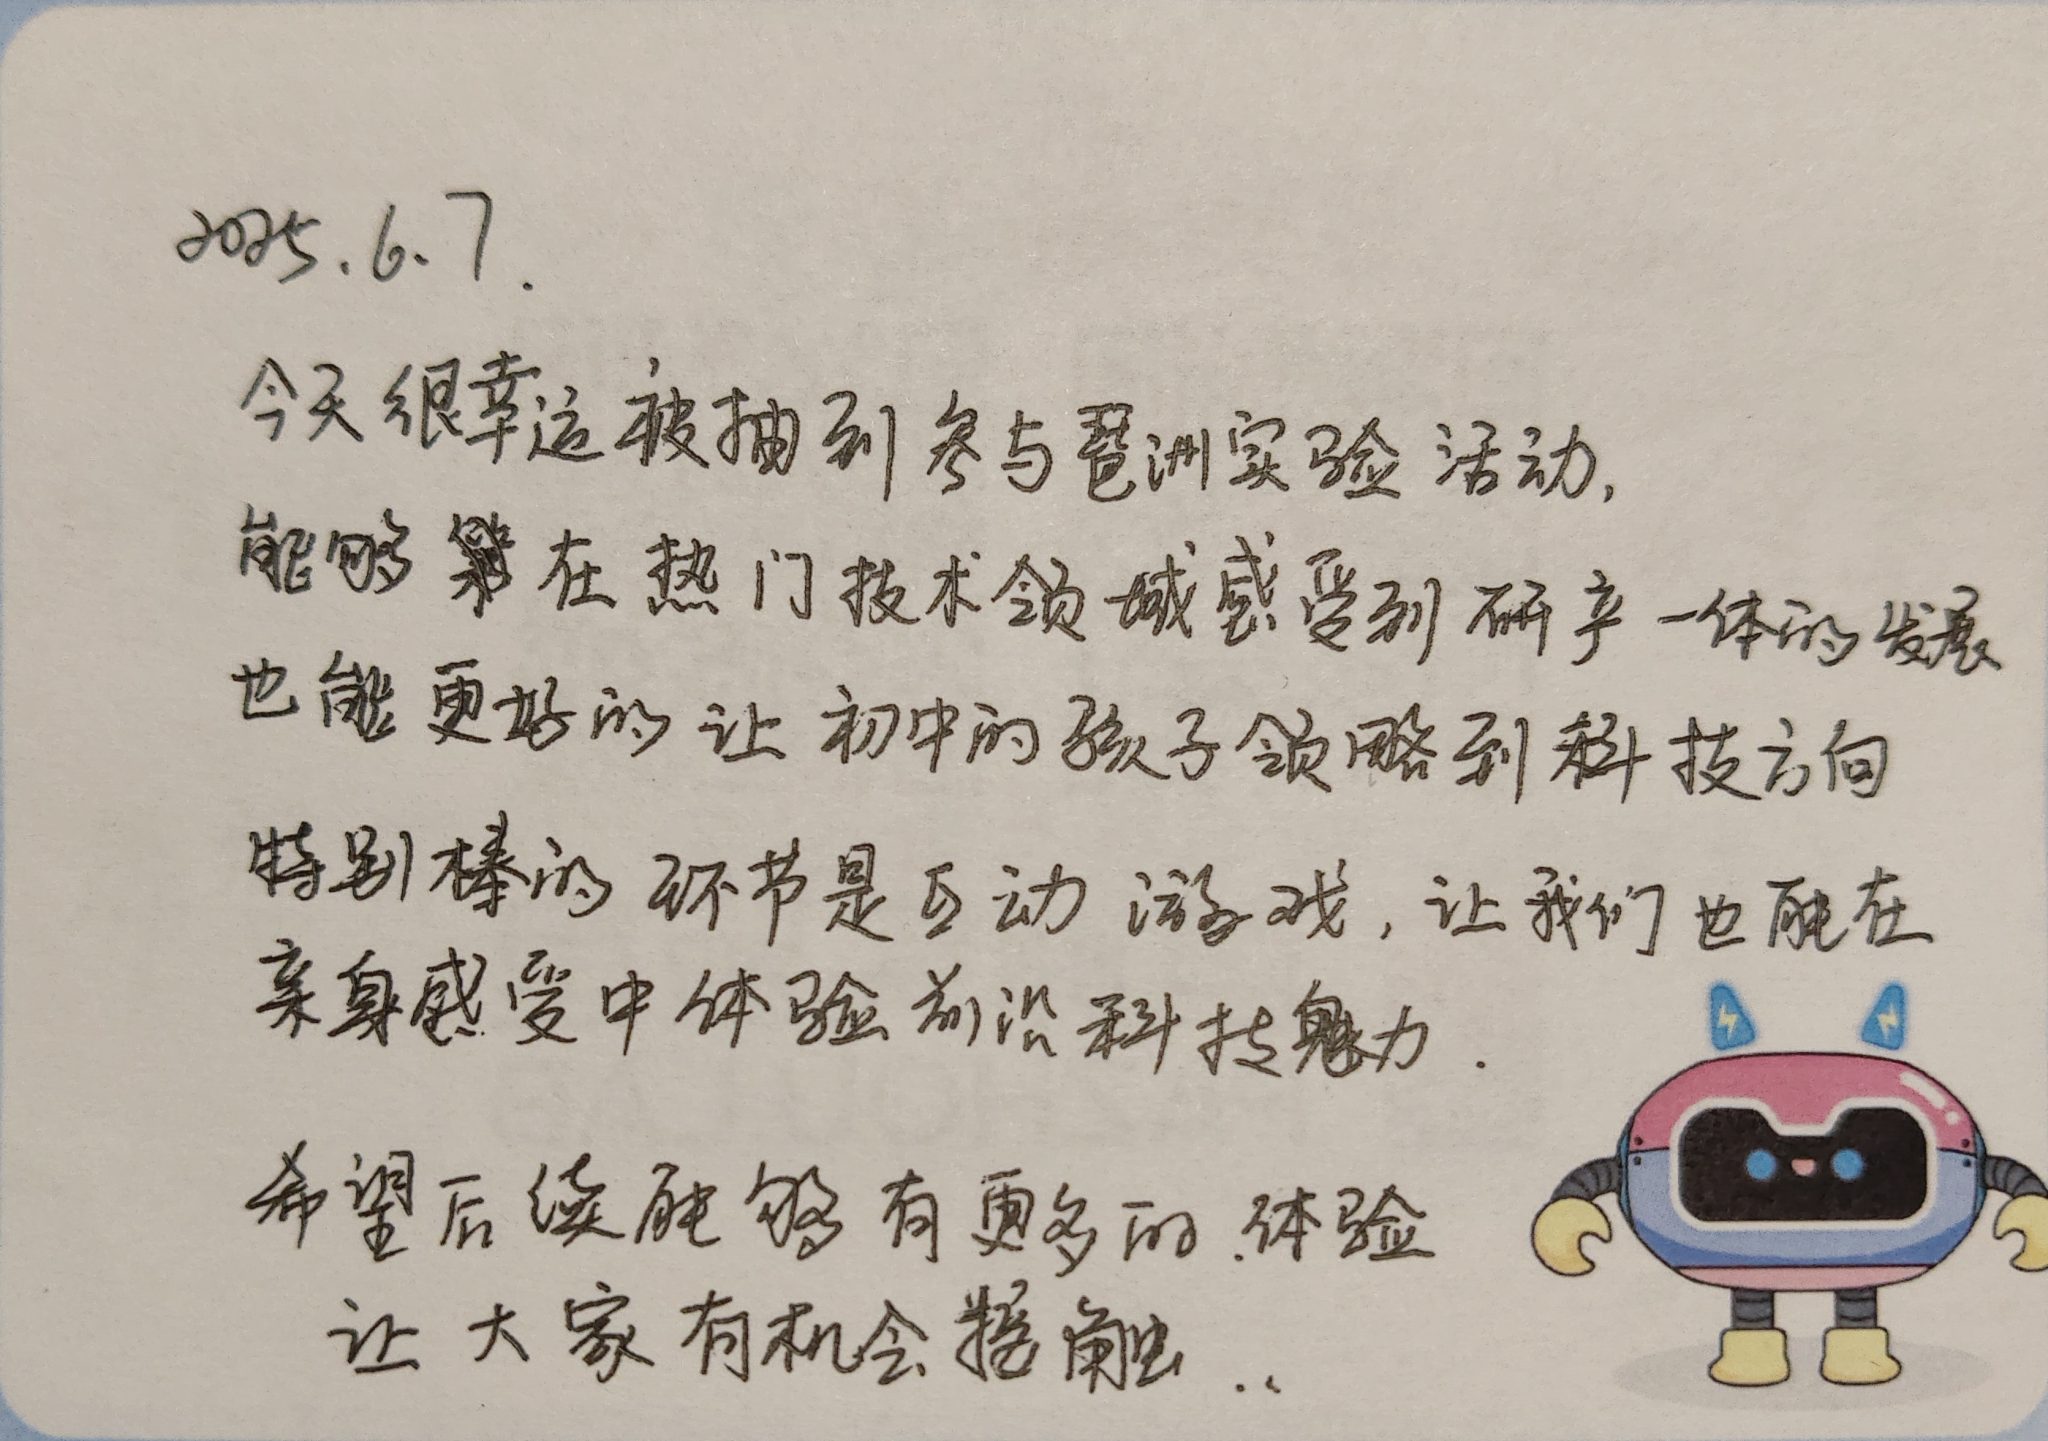 2025.6.7.
今天很幸运被抽到参与琶洲实验活动,
能够在热门技术领域感受到研产一体的发展
也能更好的让初中的孩子领略到科技方向
特别棒的环节是互动游戏,让我们也能在
亲身感受中体验前沿科技魅力.
希望后续能够有更多的体验
让大家有机会接触..